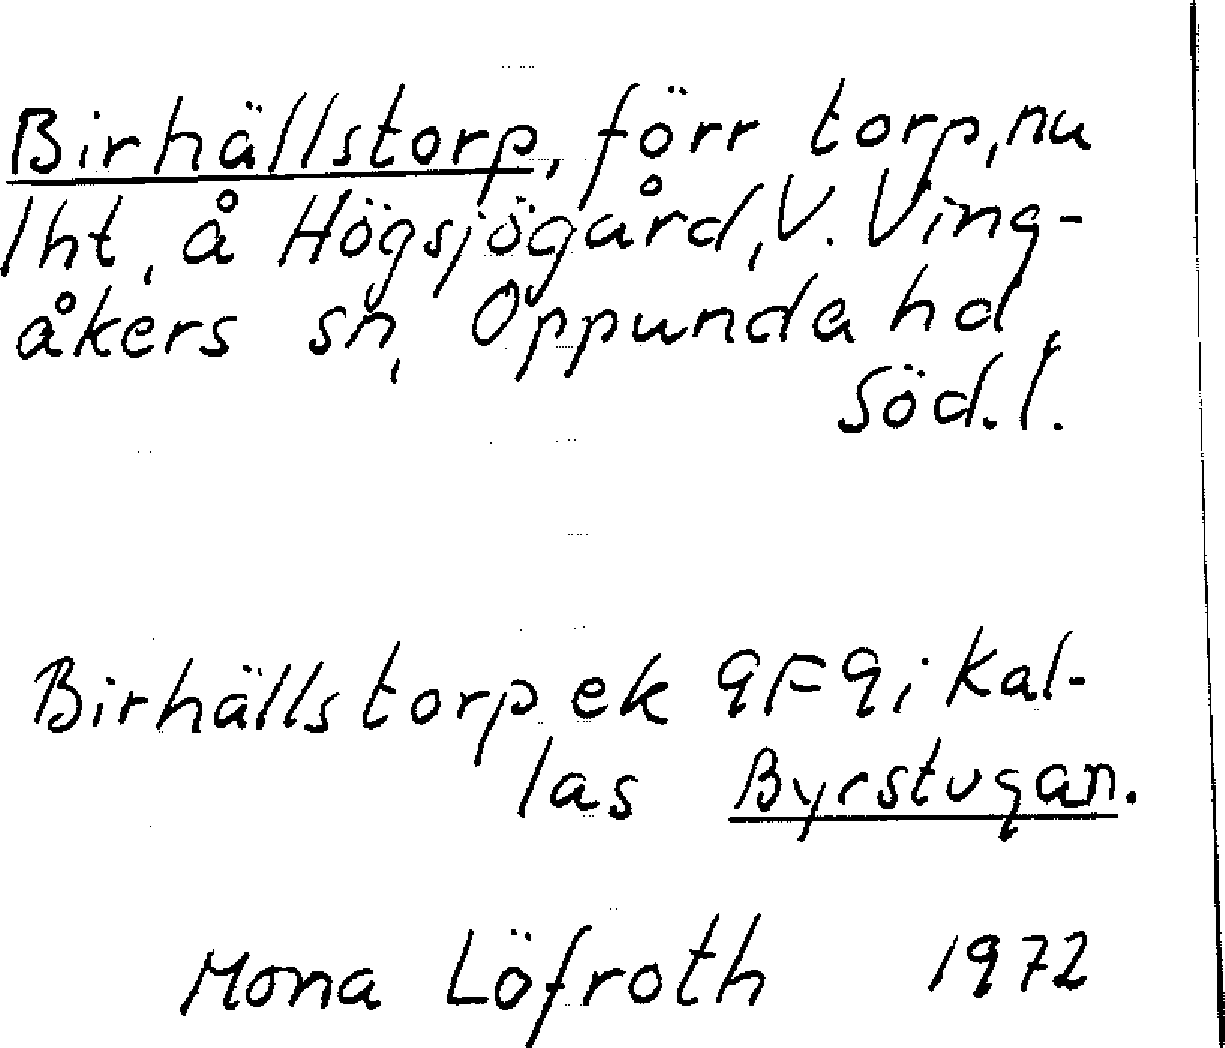 Birhällstorp, förr torp, nu
lht, å Högsjögård, V. Ving-
åkers sn, Oppunda hd,
Söd. l.
Birhällstorp ek 9F9i kal-
las Byrstugan.
Mona Löfroth 1972